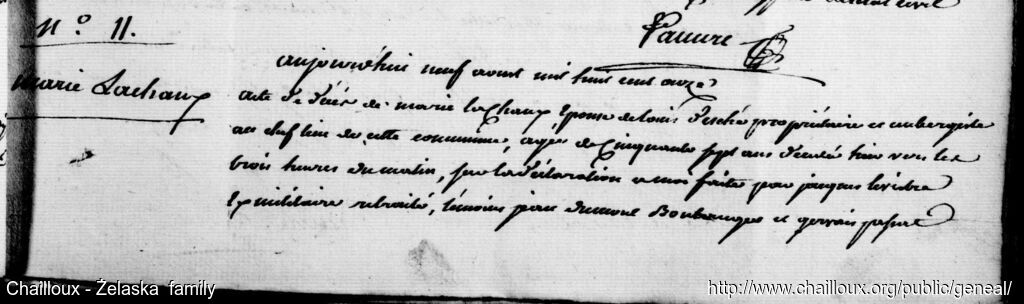 N.o 11.
Pauvre
Marie Lachaux
aujourd'huy neuf aout mil huit cent onze
acte de décés de marie lachaux Epouse de Louis propriétaire et aubergiste
au chef lieu de cette commune, agée de Cinquante sept ans hier vers les
trois heures du matin, sur la déclaration a moi faite par jacques
Ex militaire retraité, témoins dumont Boulanger et gervais
Chailloux - Żelaska family
http://www.chailloux.org/public/geneal/